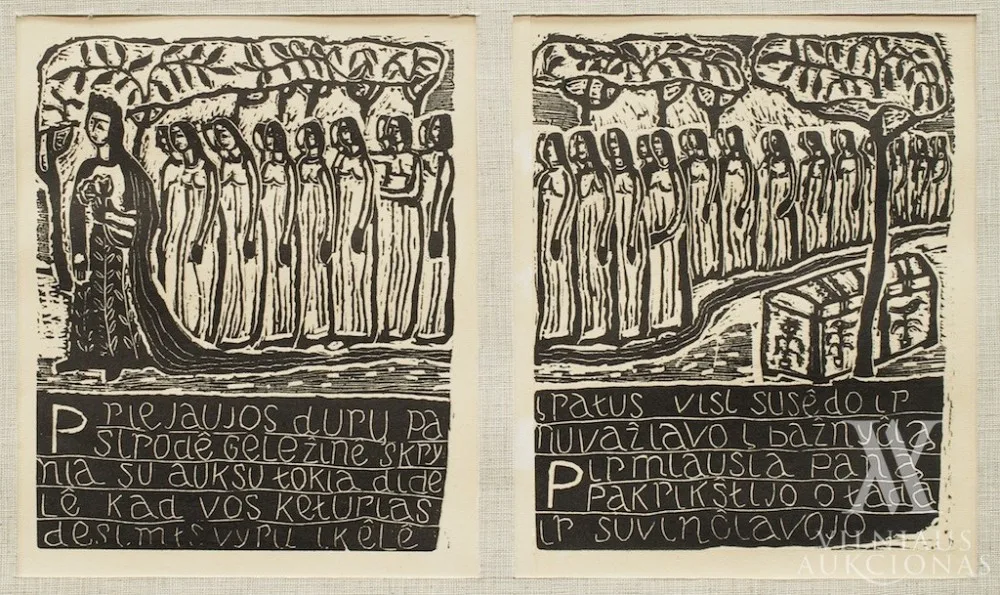 Prie jaujos durų pa
sirodė geležinė skry
nia su auksu tokia dide
lė kad vos keturias
dešimts vyrų įkėlė
į ratus visi susėdo ir
nuvažiavo į bažnyčią
Pirmiausia paną
pakrikštijo o tada
ir suvinčiavojo
VILNIAUS
AUKCIONAS